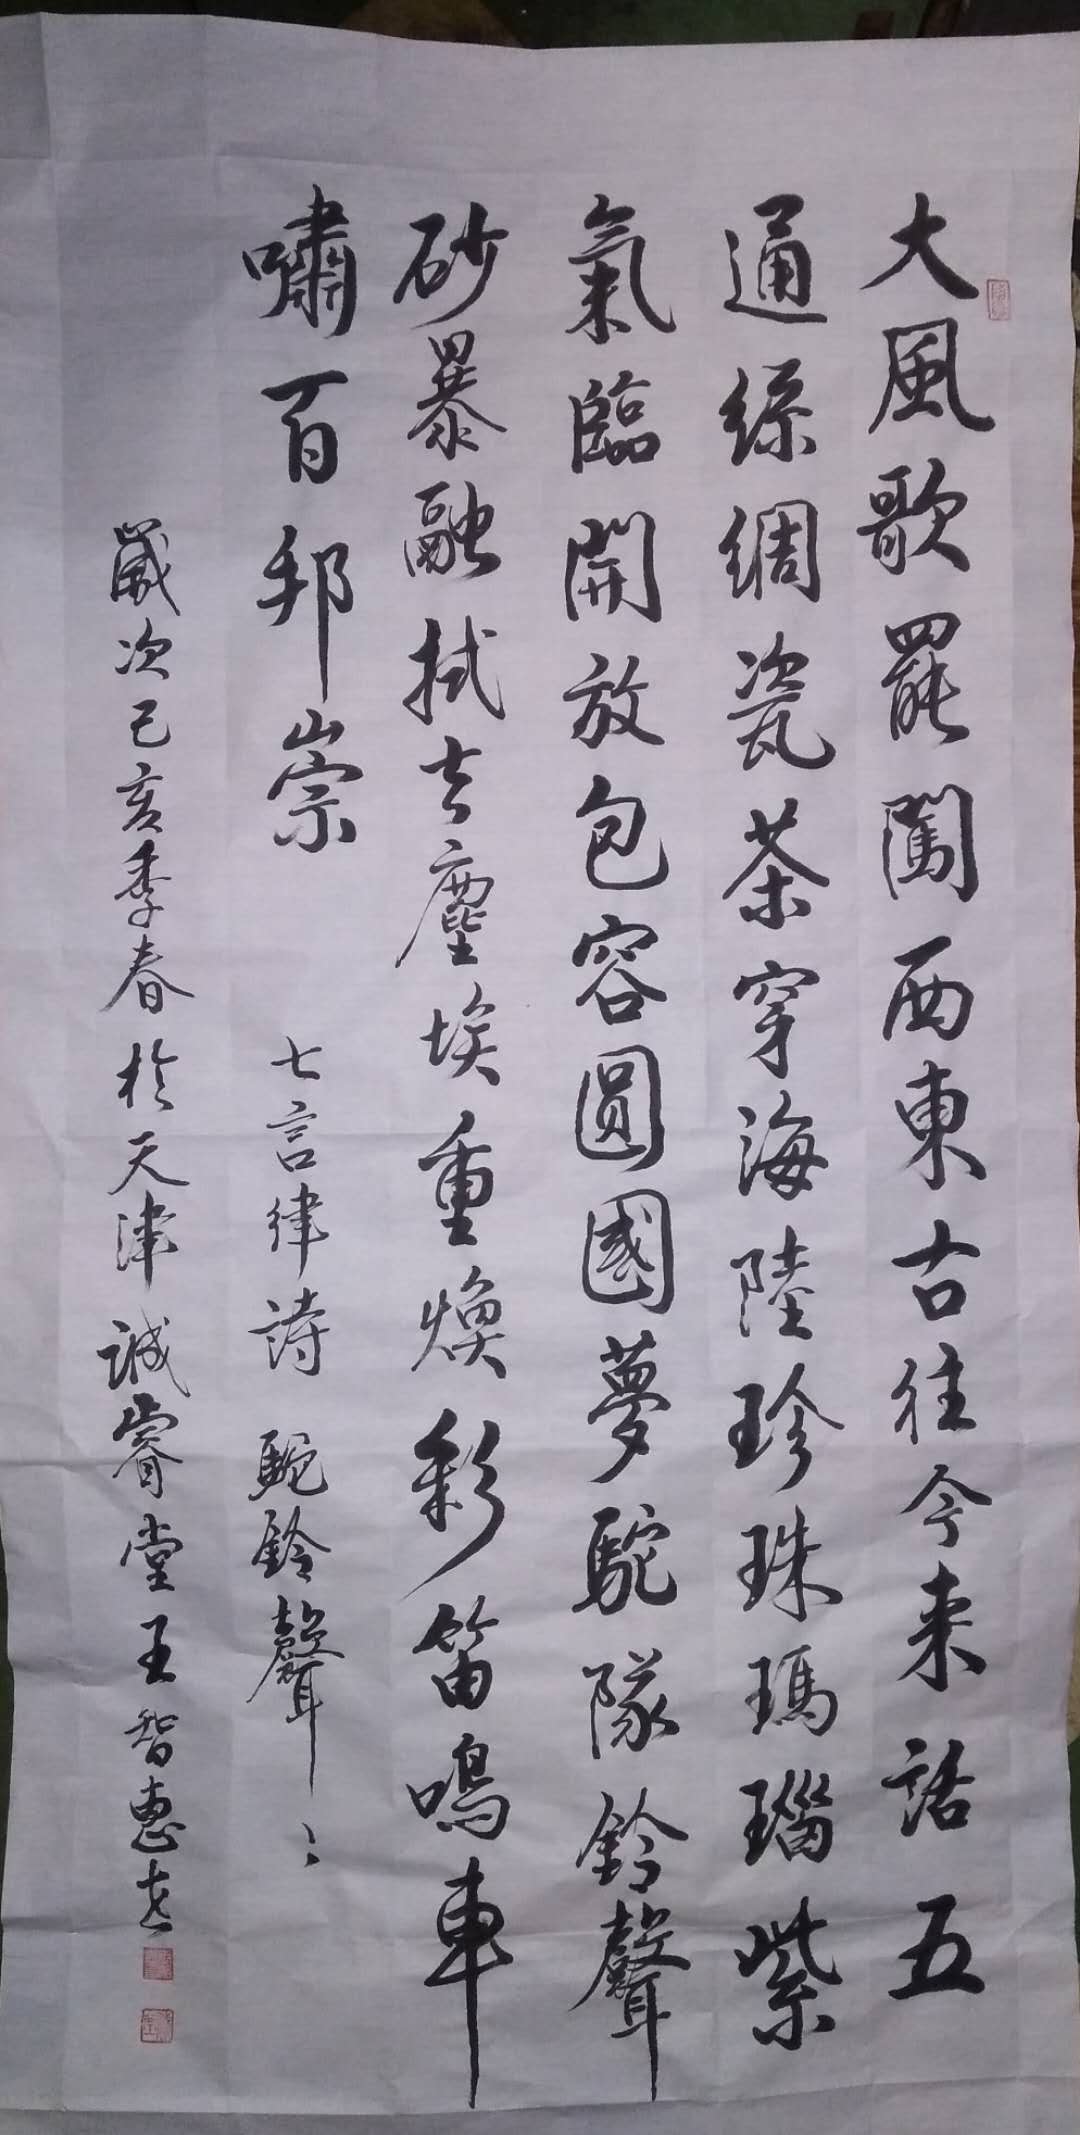 大風歌罷闖西東古往今来話五
通絲綢瓷茶穿海陸珍珠瑪瑙紫
氣臨開放包容圓國夢駝隊鈴聲
砂暴融拭去塵埃重焕彩笛鳴車
嘯百邦崇
七言律詩 駝鈴聲聲
歲次己亥季春於天津誠睿堂王智惠書